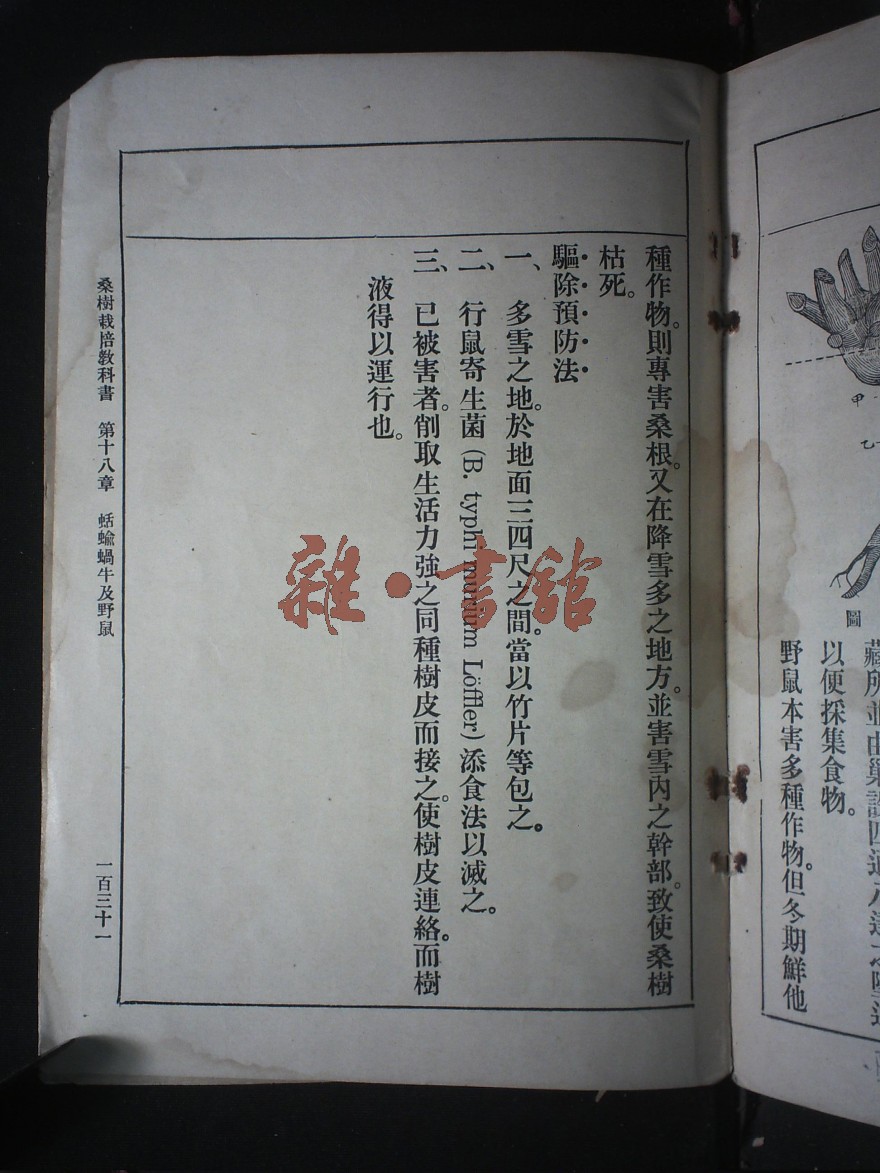 甲
乙
圖
藏所並由巢
以便採集食物。
野鼠本害多種作物。但冬期鮮他
種作物。則專害桑根。又在降雪多之地方。並害雪內之幹部。致使桑樹
枯死。
驅除預防法
一、多雪之地。於地面三四尺之間。當以竹片等包之。
二、行鼠寄生菌(B. typhi murium Löffler)添食法以滅之。
三、已被害者。削取生活力強之同種樹皮而接之。使樹皮連絡。而樹
液得以運行也。
桑樹栽培敎科書 第十八章 蛞蝓蝸牛及野鼠 一百三十一
雜·書館